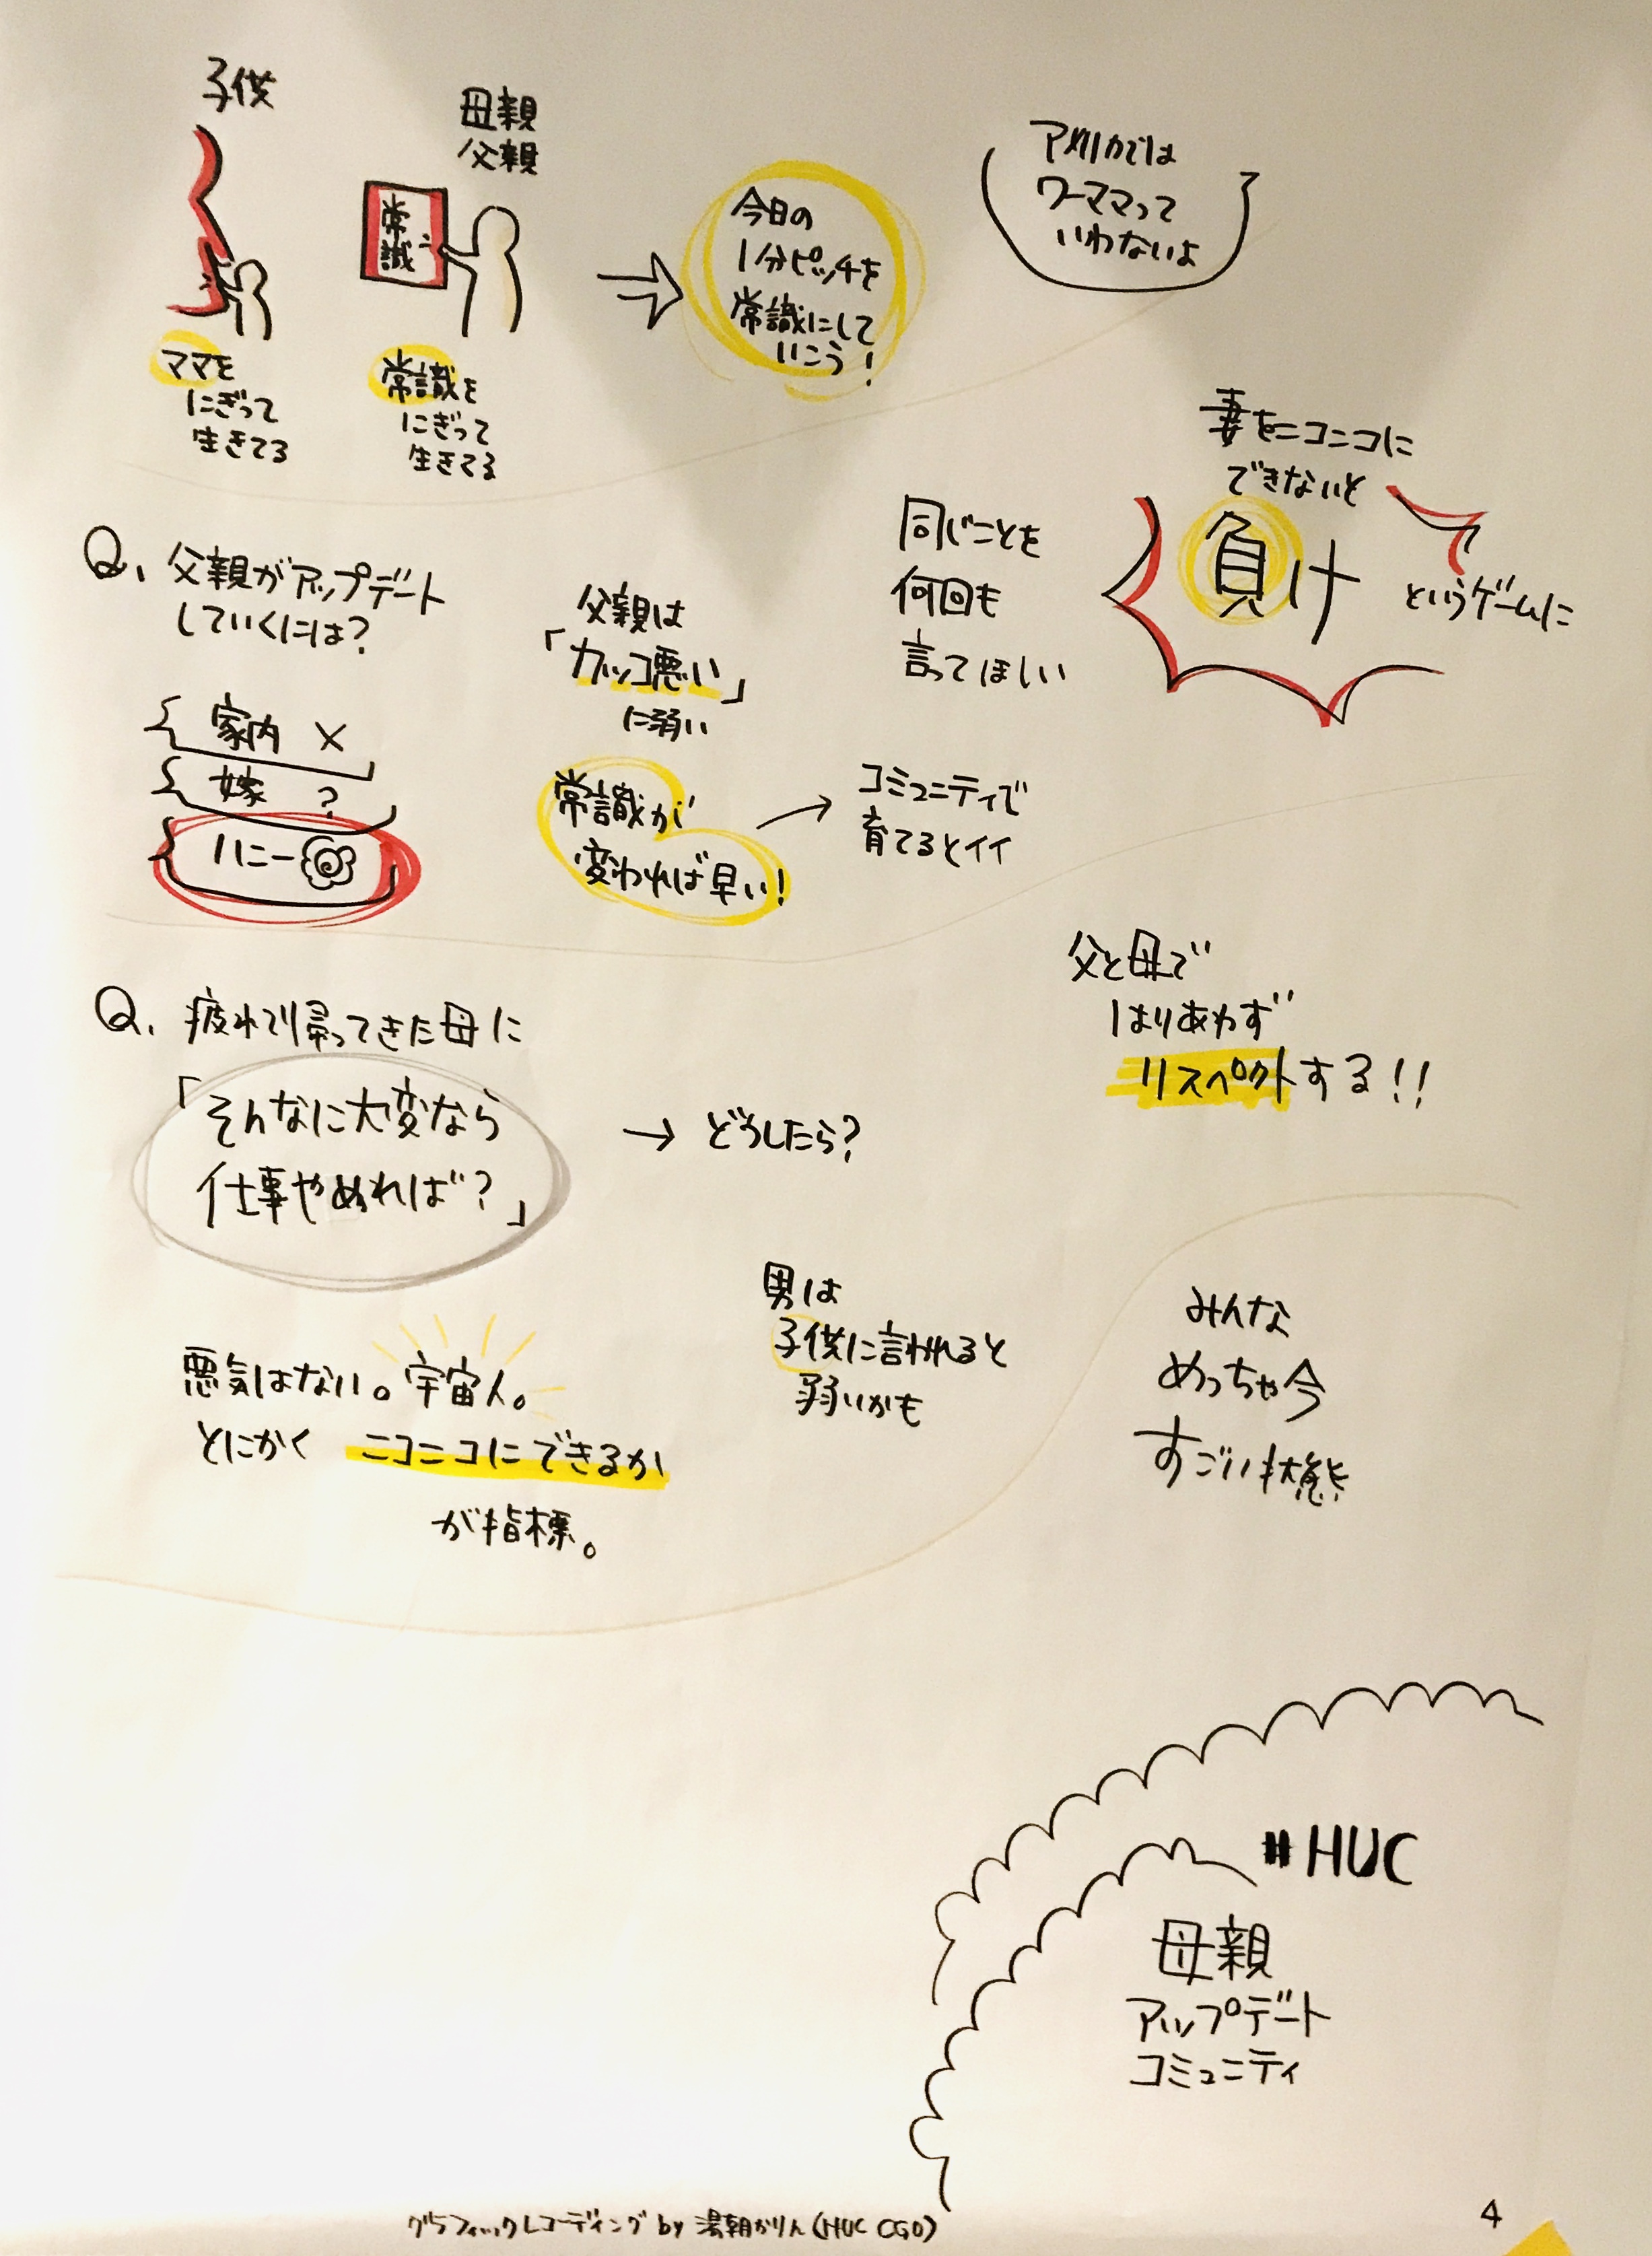 子供
母親
父親
常
識
ママを
にぎって
生きてる
常識を
にぎって
生きてる
今日の
1分ピッチを
常識にして
いこう!
アメリカでは
ワーママって
いわないよ
Q. 父親がアップデート
していくには?
家内 ×
嫁 ?
ハニー
父親は
「カッコ悪い」
に弱い
常識が
変われば早い!
コミュニティで
育てるとイイ
同じことを
何回も
言ってほしい
妻をニコニコに
できないと
負け
というゲームに
父と母で
はりあわず
リスペクトする!!
Q. 疲れて帰ってきた母に
「そんなに大変なら
仕事やめれば?」
→ どうしたら?
悪気はない。宇宙人。
とにかく ニコニコにできるか
が指標。
男は
子供に言われると
弱いかも
みんな
めっちゃ今
すごい状態
#HUC
母親
アップデート
コミュニティ
グラフィックレコーディング by 湯朝かりん(HUC CGO)
4